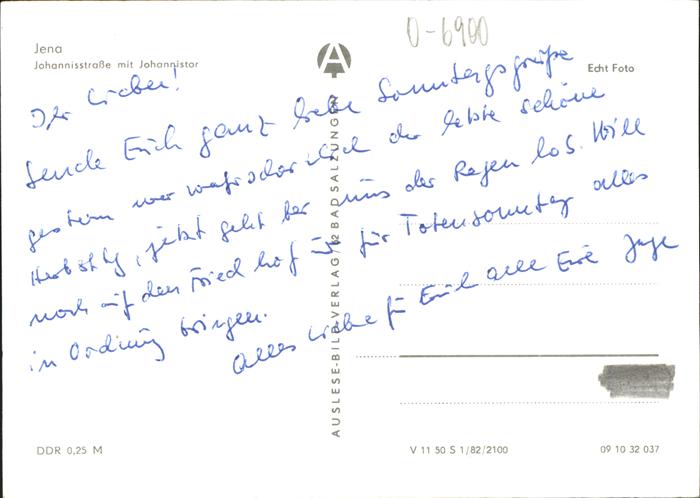 O-6900
Jena
Johannisstraße mit Johannistor
Echt Foto
Ihr Lieben!
Sende Euch ganz liebe Sonntagsgrüße
gestern war wahrscheinlich der letzte schöne
Herbsttag, jetzt geht bei uns der Regen los. Will
noch auf dem Friedhof für Totensonntag alles
in Ordnung bringen.
Alles Liebe für Euch alle Eure Inge
AUSLESE-BILD-VERLAG, 62 BAD SALZUNGEN
DDR 0,25 M
V 11 50 S 1/82/2100
09 10 32 037